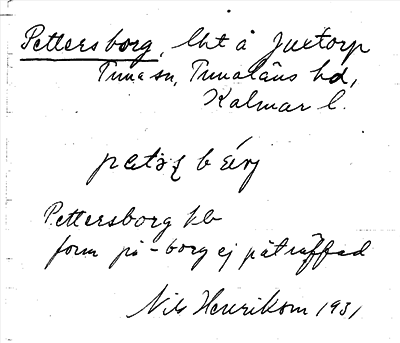 Pettersborg, lht å Juxtorp
Tuna sn, Tunaläns hd,
Kalmar l.
Pettersborg hb
form på -borg ej påträffad
Nils Henrikson 1931